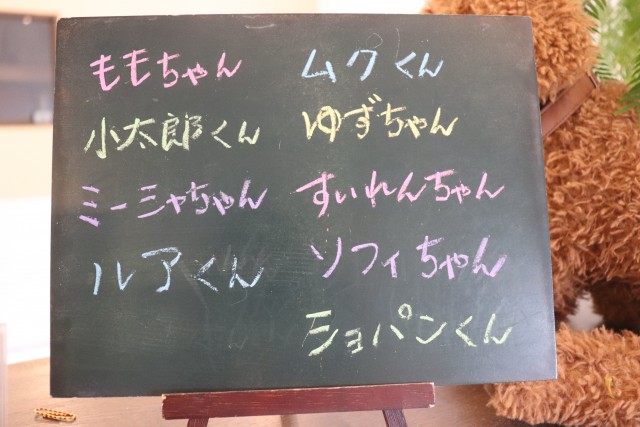 ももちゃん
小太郎くん
ミーシャちゃん
ルアくん
ムクくん
ゆずちゃん
すいれんちゃん
ソフィちゃん
ショパンくん